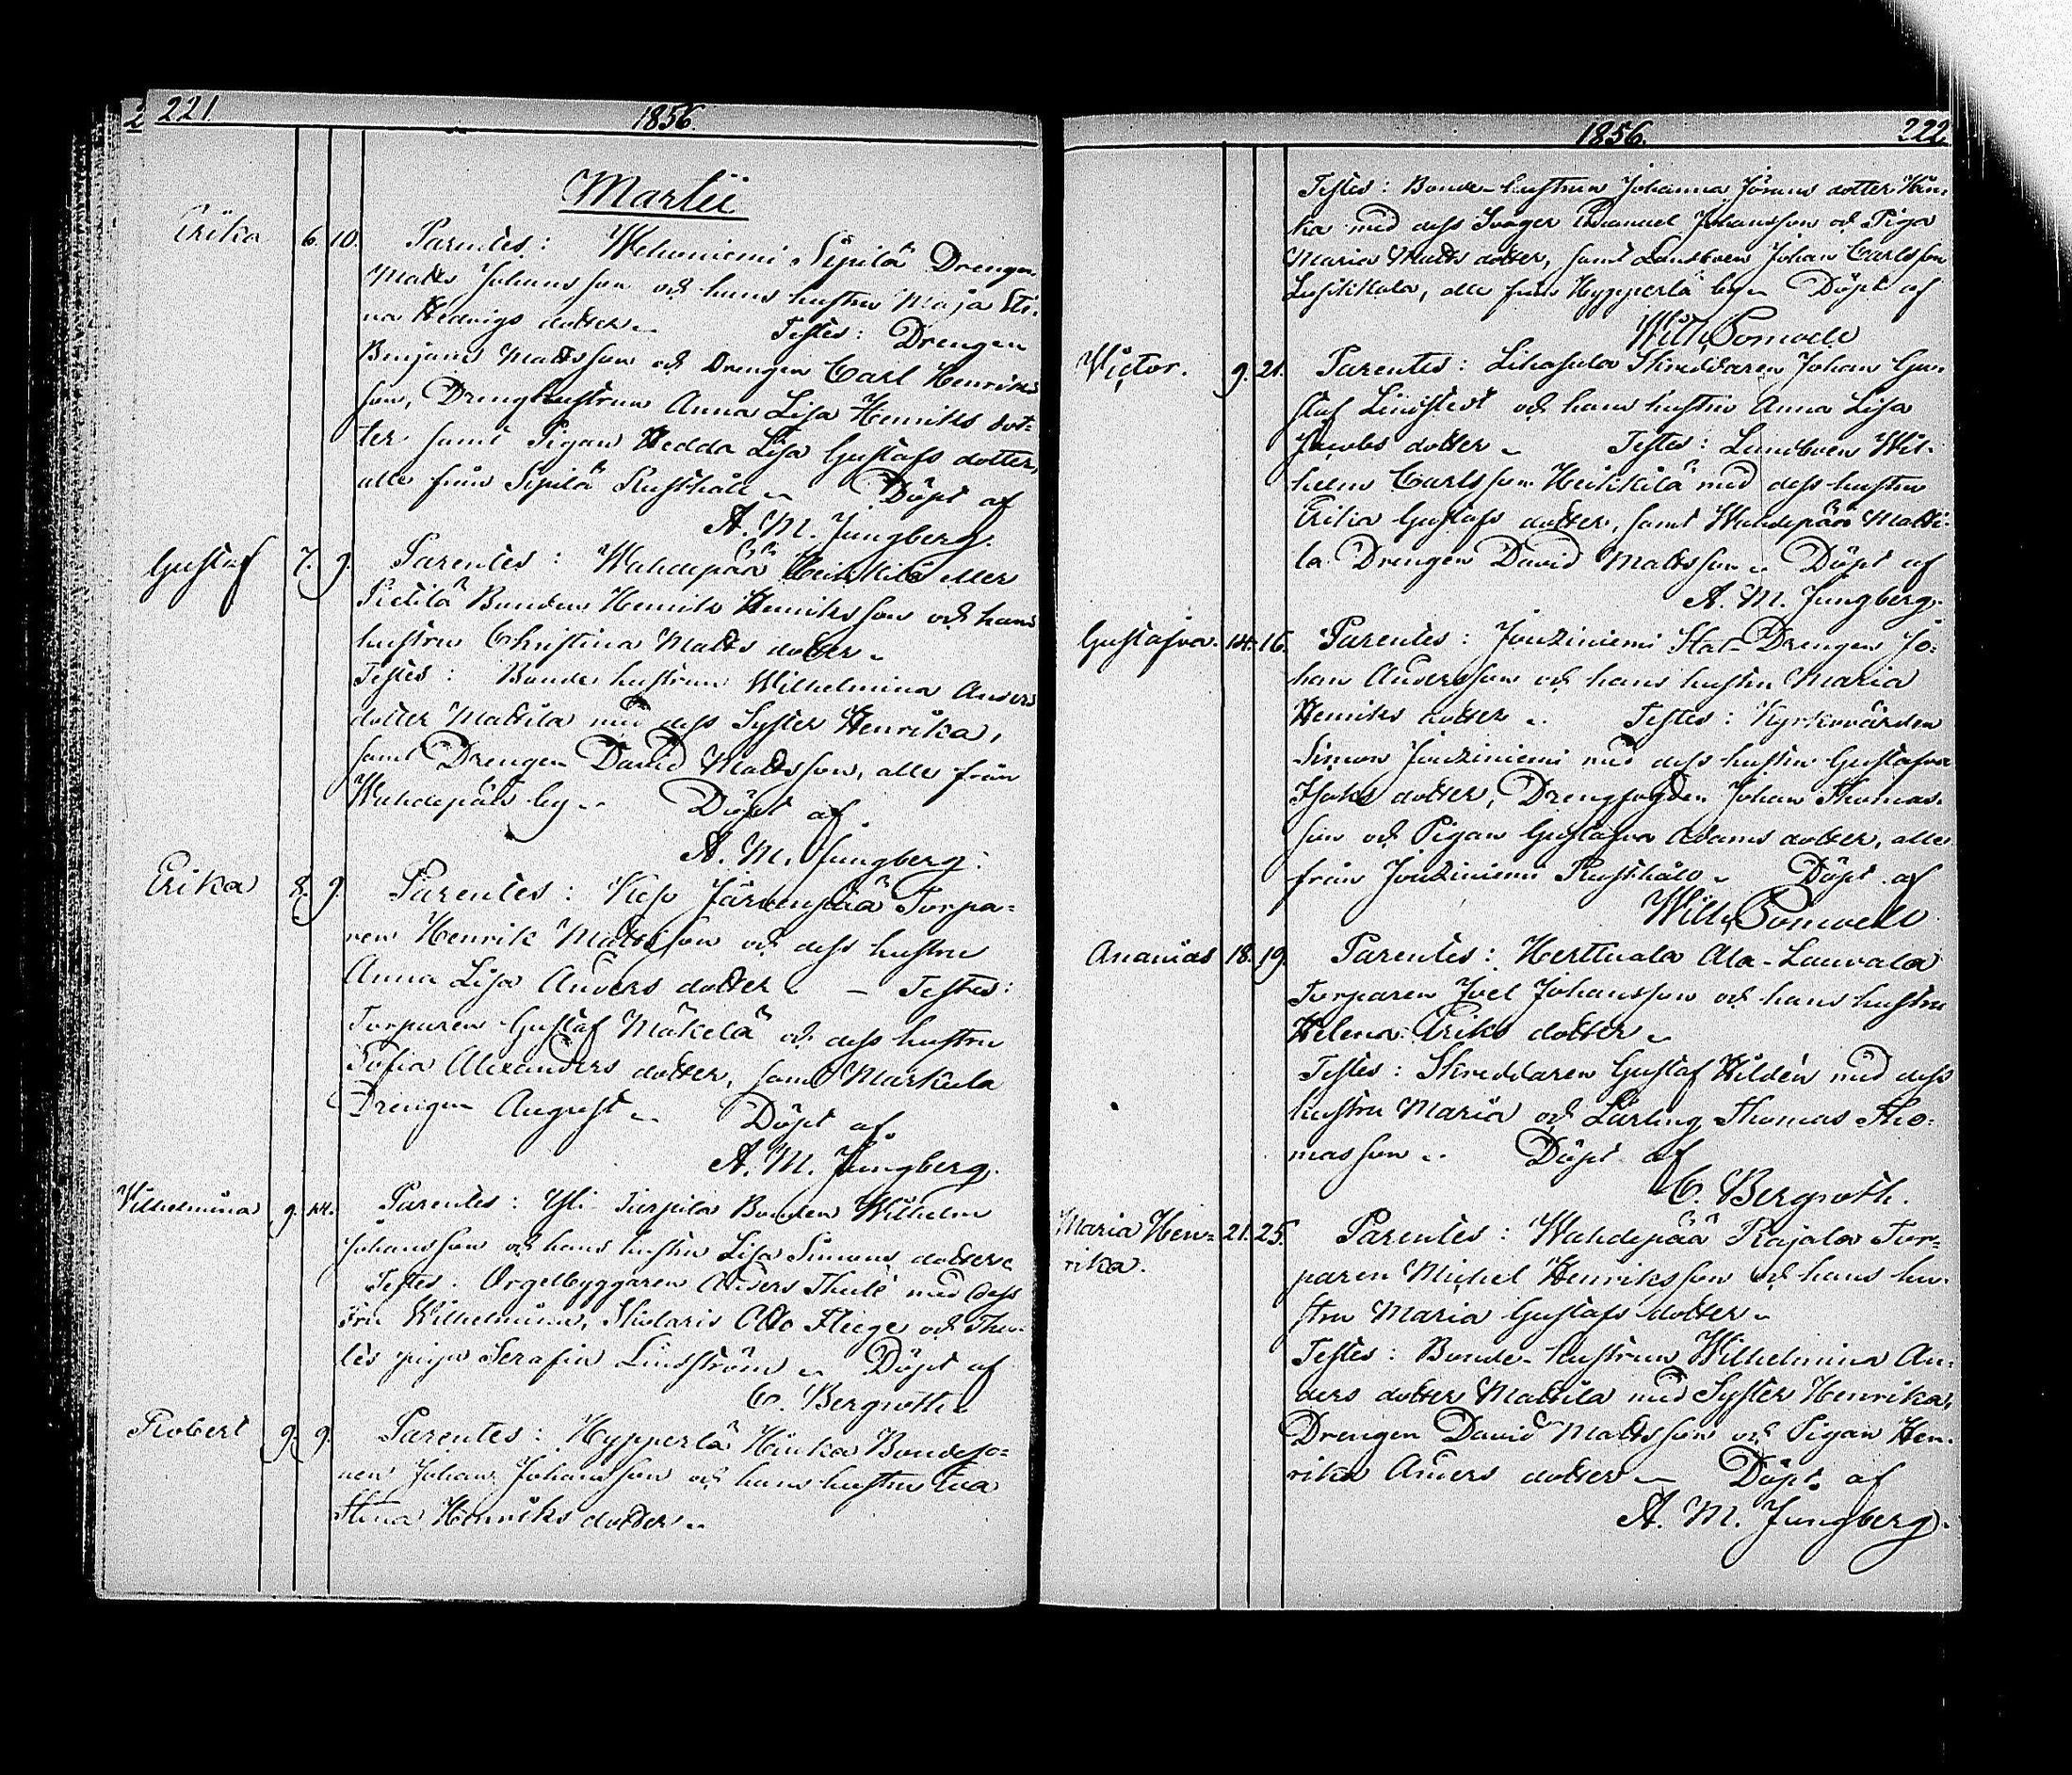 221
1856.
Martii
Erika 6. 10. Parentes: Wehaniemi Sipilä Drengen
Matts Johansson och hans hustru Maja Sti-
na Hedvigs dotter. Testes: Drengen
Benjam Mattsson och Drengen Carl Henriks
son, Drenghustrun Anna Lisa Henriks dot-
ter samt Pigan Hedda Lisa Gustafs dotter,
alle från Sipilä Rusthåll. Döpt af
A. M. Jungberg.
Gustaf 7. 9. Parentes: Wahdepää Heikkilä eller
Pietilä Bonden Henrik Henriksson och hans
hustru Christina Matts dotter.
Testes: Bonde hustrun Wilhelmina Anders
dotter Mattila med dess Syster Henrika,
samt Drengen David Mattsson, alle från
Wahdepää by. Döpt af
A. M. Jungberg.
Erika 8. 9. Parentes: Järvenpää Torpa-
ren Henrik Mattsson och dess hustru
Anna Lisa Anders dotter. – Testes:
Torparen Gustaf Mäkelä och dess hustru
Sofia Alexanders dotter, samt Markula
Drengen August. Döpt af
A. M. Jungberg.
Wilhelmina 9. 14. Parentes: Yli Turpila Bonden Wilhelm
Johansson och hans hustru Lisa Simons dotter.
Testes: Orgelbyggaren Anders Thulé med dess
Fru Wilhelmina, Skolaris Otto Fliege och Thu-
lés piga Serafia Lindström. Döpt af
C. Bergroth.
Robert 9. 9. Parentes: Hypperlä Hinka Bondeso-
nen Johan Johansson och hans hustru Eva
Stina Henriks dotter.
1856. 222.
Testes: Bonde-hustrun Johanna Jörans dotter Hin-
ka med dess Svåger Emanuel Johansson och Piga
Maria Matts dotter, samt Landboen Johan Carlsson
Lusikkala, alle från Hypperlä by. Döpt af
Wilh. Polviander
Victor. 9. 21. Parentes: Lihasula Skreddaren Johan Gu-
staf Lindstedt och hans hustru Anna Lisa
Jacobs dotter. Testes: Landboen Wil-
helm Carlsson Heikkilä med dess hustru
Erika Gustafs dotter, samt Wahdepää Matti-
la Drengen David Mattsson. Döpt af
A. M. Jungberg.
Gustafva. 14. 16. Parentes: Jouziniemi Stat-Drengen Jo-
han Andersson och hans hustru Maria
Henriks dotter. Testes: Kyrkovärden
Simon Jouziniemi med dess hustru Gustafva
Isaks dotter, Drengfogden Johan Thomas-
son och Pigan Gustafva Adams dotter, alle
från Jouziniemi Rusthåll. Döpt af
Wilh.
Ananias 18. 19. Parentes: Herttuala Ala-Lauvala
Torparen Joel Johansson och hans hustru
Helena Eriks dotter.
Testes: Skreddaren Gustaf Hildén med dess
hustru Maria och Lärling Thomas Tho-
masson. Döpt af
C. Bergroth.
Maria Hen- 21. 25. Parentes: Wahdepää Rajala Tor-
rika. paren Michel Henriksson och hans hu-
stru Maria Gustafs dotter.
Testes: Bonde-hustrun Wilhelmina An-
ders dotter Mattila med Syster Henrika,
Drengen David Mattsson och Pigan Hen-
rika Anders dotter. Döpt af
A. M. Jungberg.